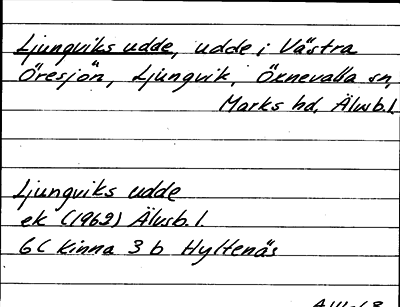 Ljungviks udde, udde i Västra
Öresjön, Ljungvik, Öxnevalla sn,
Marks hd, Älvsb.l.
Ljungviks udde
ek (1962) Älvsb. l.
6C Kinna 3 b Hyltenäs